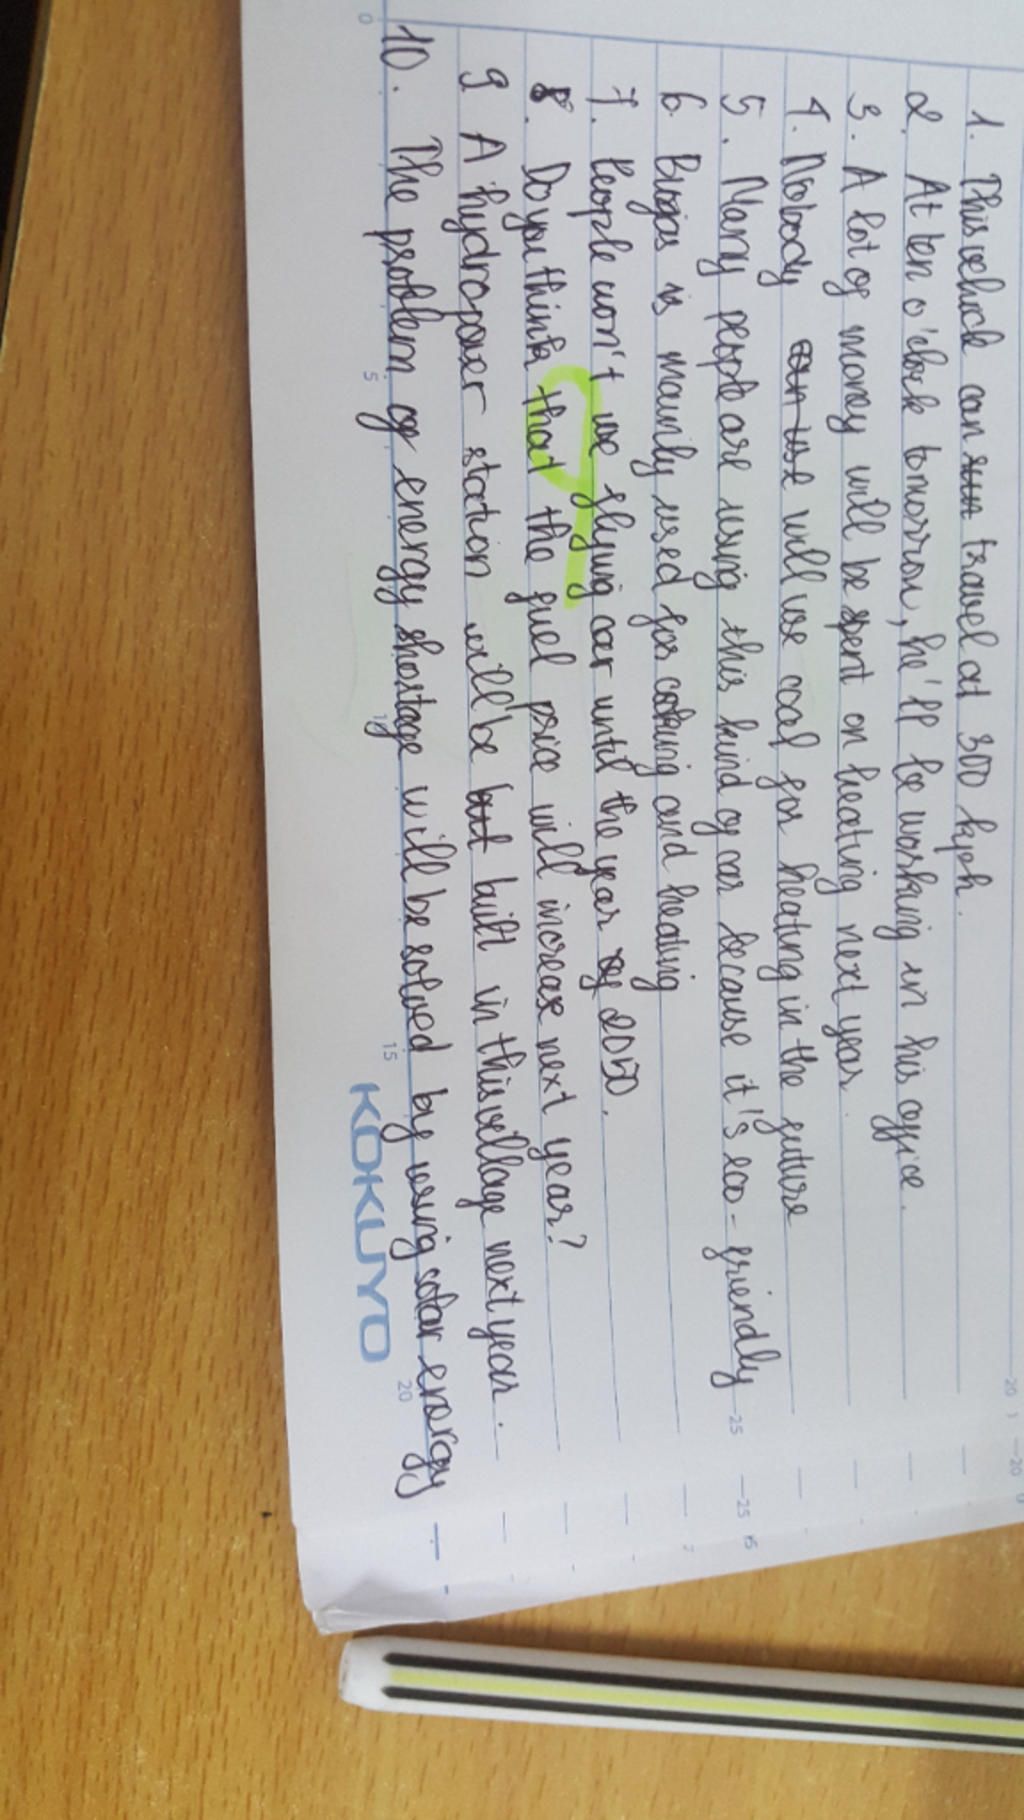 1. This vehicle can travel at 300 kph.
2. At ten o'clock tomorrow, he'll be working in his office.
3. A lot of money will be spent on heating next year.
4. Nobody will use coal for heating in the future
5. Many people are using this kind of car because it's eco-friendly
6 Biogas is mainly used for coking and heating
7. People won't use flying car until the year 2050.
8. Do you think that the fuel price will increase next year?
9 A hydropower station will be built in this village next year.
10. The problem of energy shortage will be solved by using solar energy
KOKUYO